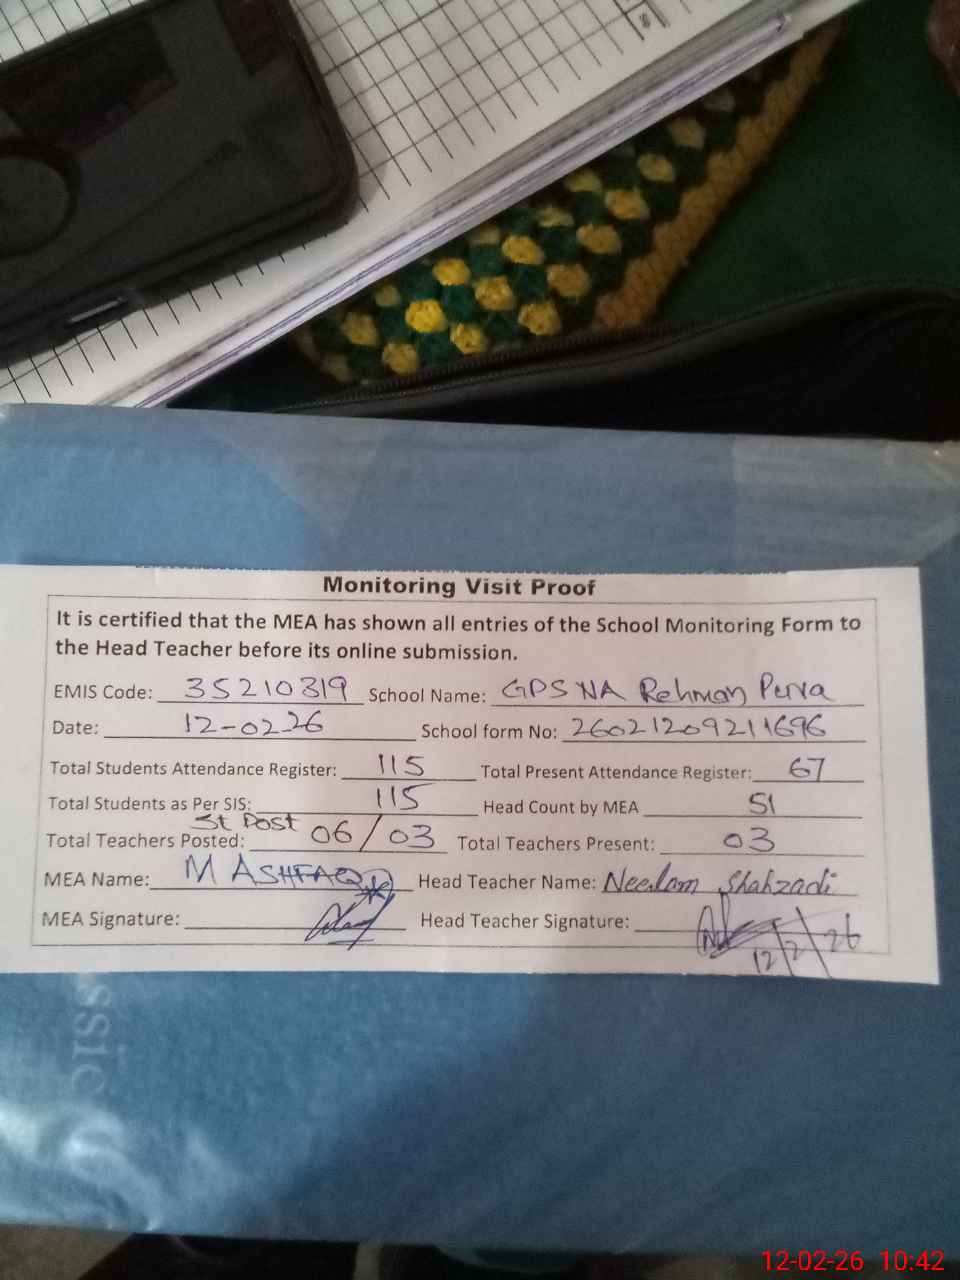 Monitoring Visit Proof
It is certified that the MEA has shown all entries of the School Monitoring Form to
the Head Teacher before its online submission.
EMIS Code: 35210319 School Name: GPS NA Rehman Perva
Date: 12-02-26 School form No: 26021209211696
Total Students Attendance Register: 115 Total Present Attendance Register: 67
Total Students as Per SIS: 115 Head Count by MEA 51
St Post
Total Teachers Posted: 06/03 Total Teachers Present: 03
MEA Name: M ASHFAQ Head Teacher Name: Neelam Shahzadi
MEA Signature: Head Teacher Signature:
12/2/26
ssic
12-02-26 10:42